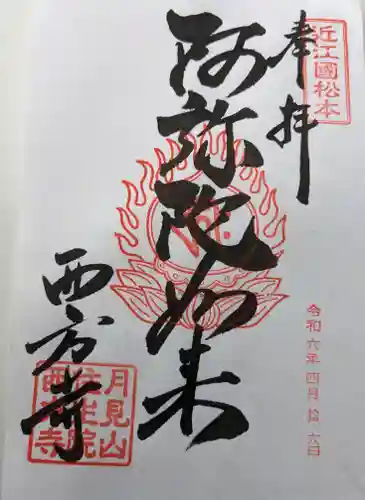 奉拝
近江國松本
阿弥陀如来
令和六年四月拾六日
西方寺
月見山
往生院
西方寺